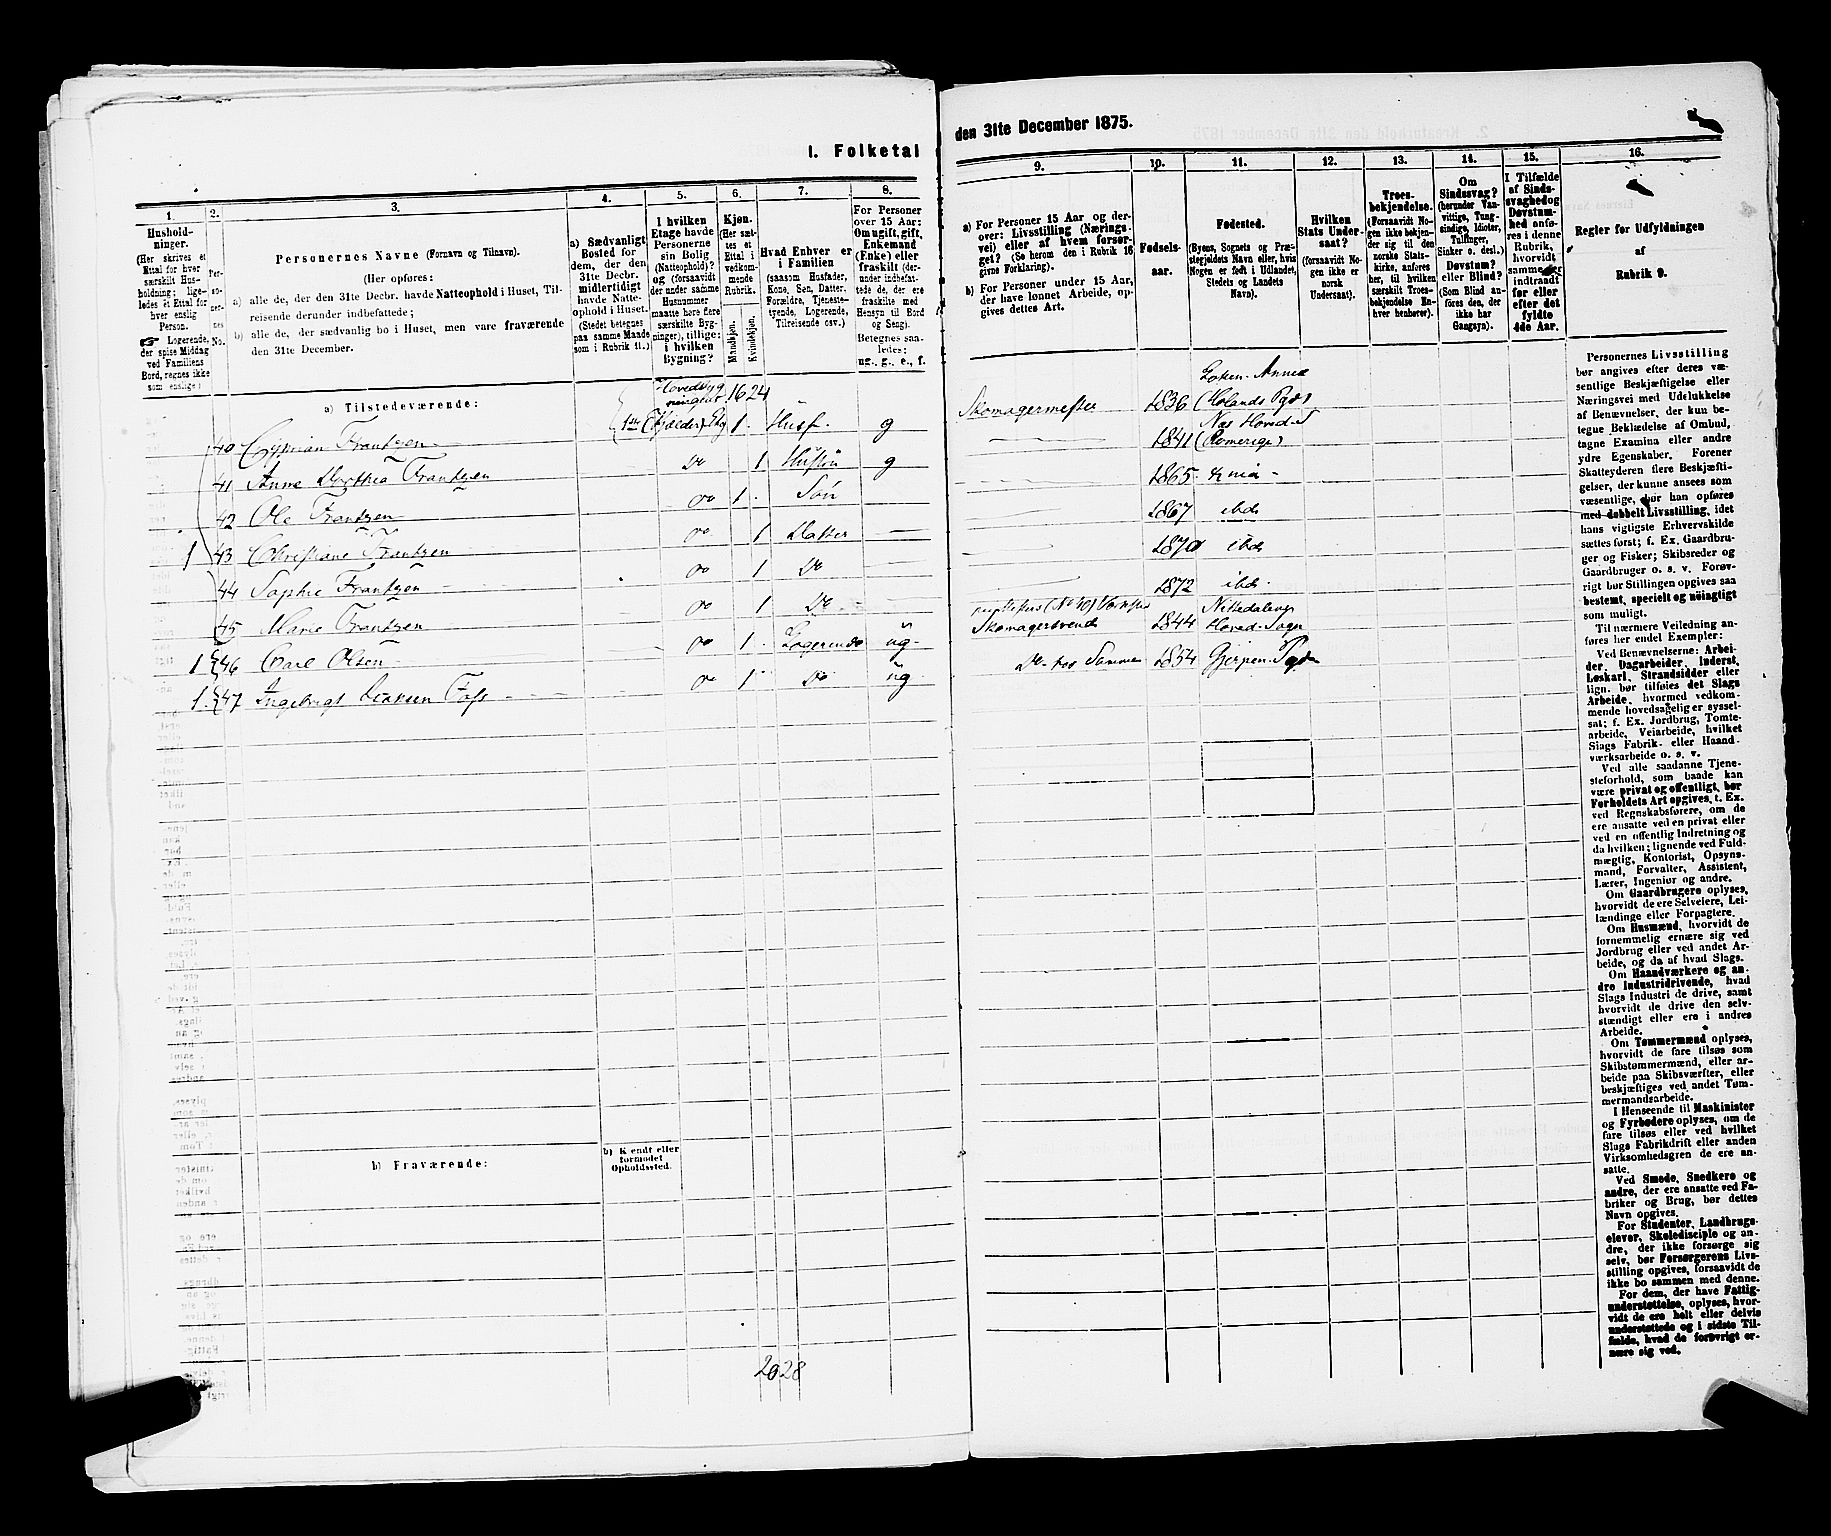 I. Folketal
1.
2.
3.
4.
5.
6.
7.
8.
Hushold-
ninger.
(Her skrives et
Ettal for hver
særskilt Hus-
holdning; lige-
ledes et Ettal for
hver enslig
Person.
☛ Logerende,
der spise Middag
ved Familiens
Bord, regnes ikke
som enslige)
Per-
so-
ner-
nes
No.
Personernes Navne (Fornavn og Tilnavn).
(Her opføres:
a) alle de, der den 31te Decbr. havde Natteophold i Huset, Til-
reisende derunder indbefattede;
b) alle de, der sædvanlig bo i Huset, men vare fraværende
den 31te December.
a) Sædvanligt
Bosted for
dem, der den
31te Decbr.
midlertidigt
havde Natte-
ophold i Huset.
(Stedet betegnes
paa samme Maade
som i Rubrik 11.)
I hvilken
Etage havde
Personerne
sin Bolig
(Natteophold)?
og (forsaavidt
der under samme
Husnummer
maatte høre flere
særskilte Byg-
ninger), tillige:
i hvilken
Bygning?
Kjøn.
(Her sæt-
tes et
Ettal i
vedkom-
mende
Rubrik.
Mandkjøn.
Kvindekjøn.
Hvad Enhver er
i Familien
(saasom Husfader,
Kone, Søn, Datter,
Forældre, Tjeneste-
tyende, Logerende,
Tilreisende osv.)
For Personer
over 15 Aar:
Om ugift, gift,
Enkemand
(Enke) eller
fraskilt (der-
under indbefat-
tede de, der ere
fraskilte med
Hensyn til Bord
og Seng).
Betegnes saa-
ledes:
ug., g., e., f.
a) Tilstedeværende:
1624
40 Cyprian Frantzen 1 Husf. g
41 Anne Dorthea Frantzen Do 1 Hustru g
42 Ole Frantzen Do 1 Søn
1 43 Christiane Frantzen Do 1 Datter
44 Sophie Frantzen Do 1 Do
45 Marie Frantzen Do 1 Do
1 46 Carl Olsen Do 1 Logerende ug
1 47 Ingebrigt Foss Do 1 Do ug
b) Fraværende:
b) Kjendt eller
formodet
Opholdssted.
2028
den 31te December 1875.
9.
10.
11.
12.
13.
14.
15.
16.
a) For Personer 15 Aar og der-
over: Livsstilling (Nærings-
vei) eller af hvem forsør-
get? (Se herom den i Rubrik 16
givne Forklaring).
b) For Personer under 15 Aar,
der have lønnet Arbeide, op-
gives dettes Art.
Fødsels-
aar.
Fødested.
(Byens, Sognets og Præ-
stegjeldets Navn eller, hvis
Nogen er født i Udlandet,
Stedets og Landets
Navn).
Hvilken
Stats Under-
saat?
(forsaavidt No-
gen ikke er
norsk
Undersaat).
Troes-
bekjendelse.
(Forsaavidt No-
gen ikke bekjen-
der sig til den
norske Stats-
kirke, anføres
her, til hvilken
særskilt Troes-
bekjendelse En-
hver henhører).
Om
Sindssvag?
(herunder Van-
vittige, Tung-
sindige, Idioter,
Tullinger,
Sinker o. desl.)
Døvstum?
eller Blind?
(Som Blind an-
føres den, der
ikke har
Gangsyn).
I Tilfælde
af Sinds-
svaghed og
Døvstum-
hed anfø-
res i denne
Rubrik,
hvorvidt
samme er
indtraadt
før eller
efter det
fyldte
4de Aar.
Regler for Udfyldningen
af
Rubrik 9.
Skomagermester 1836 (Hølands Pgd)
1841 (Romerige)
1865
1867 ibd
1870 ibd
1872 ibd.
Skomagersvend 1844 Hoved-Sogn
Do hos Samme 1854 Gjerpen Pgd
Personernes Livsstilling
bør angives efter deres væ-
sentlige Beskjæftigelse eller
Næringsvei med Udelukkelse
af Benævnelser, der kun be-
tegne Beklædelse af Ombud,
tagne Examina eller andre
ydre Egenskaber. Forener
Skatteyderen flere Beskjæfti-
gelser, der kunne ansees som
væsentlige, bør han opføres
med dobbelt Livsstilling, idet
hans vigtigste Erhvervskilde
sættes først; f. Ex. Gaardbru-
ger og Fisker; Skibsreder og
Gaardbruger o. s. v. Forøv-
rigt bør Stillingen opgives saa
bestemt, specielt og nøiagtigt
som muligt.
Til nærmere Veiledning an-
føres her endel Exempler:
Ved Benævnelserne: Arbei-
der, Dagarbeider, Inderst,
Løskarl, Strandsidder eller
lign. bør tilføies det Slags
Arbeide, hvormed vedkom-
mende hovedsagelig er syssel-
sat; f. Ex. Jordbrug, Tomte-
arbeide, Veiarbeide, hvilket
Slags Fabrik- eller Haand-
værksarbeide o. s. v.
Ved alle saadanne Tjene-
steforhold, som baade kan
være privat og offentligt, bør
Forholdets Art opgives, t. Ex.
ved Regnskabsførere, om de
ere ansatte ved en privat eller
ved en offentlig Indretning og
da hvilken; lignende ved Fuld-
mægtig, Kontorist, Opsyns-
mand, Forvalter, Assistent,
Lærer, Ingeniør og andre.
Om Gaardbrugere oplyses,
hvorvidt de ere Selveiere, Lei-
lændinge eller Forpagtere.
Om Husmænd, hvorvidt de
fornemmelig ernære sig ved
Jordbrug eller ved andet Ar-
beide, og da af hvad Slags.
Om Haandværkere og an-
dre Industridrivende, hvad
Slags Industri de drive, samt
hvorvidt de drive den selv-
stændigt eller ere i andres
Arbeide.
Om Tømmermænd oplyses,
hvorvidt de fare tilsøs som
Skibstømmermænd, eller ar-
beide paa Skibsværfter, eller
beskjæftiges ved andet Tøm-
mermandsarbeide.
I Henseende til Maskinister
og Fyrbødere oplyses, om de
fare tilsøs eller ved hvilket
Slags Fabrikdrift eller anden
Virksomhedsgren de ere an-
satte.
Ved Smede, Snedkere og
andre, der ere ansatte ved Fa-
briker og Brug, bør dettes
Navn opgives.
For Studenter, Landbrugs-
elever, Skoledisciple og an-
dre, der ikke forsørge sig
selv, bør Forsørgerens Livs-
stilling opgives, forsaavidt de
ikke bo sammen med denne.
For dem, der have Fattig-
understøttelse, oplyses, hvor-
vidt de ere helt eller delvis
understøttede og i sidste Til-
fælde, hvad de forøvrigt er-
nære sig ved.